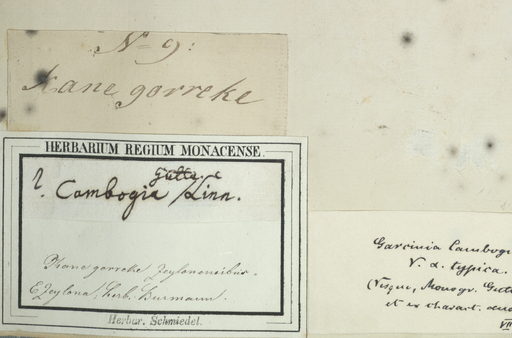 No 9:
Kane gorreke
HERBARIUM REGIUM MONACENSE.
?. Cambogia Gutta. L Linn.
Kane gorreke Zeylonensibus.
E Zeylona, herb. Burmann.
Herbar. Schmiedel.
Garcinia Cambogi
V. α. typica.
(Vesque, Monogr. Gutt
et ex charact. 
VII